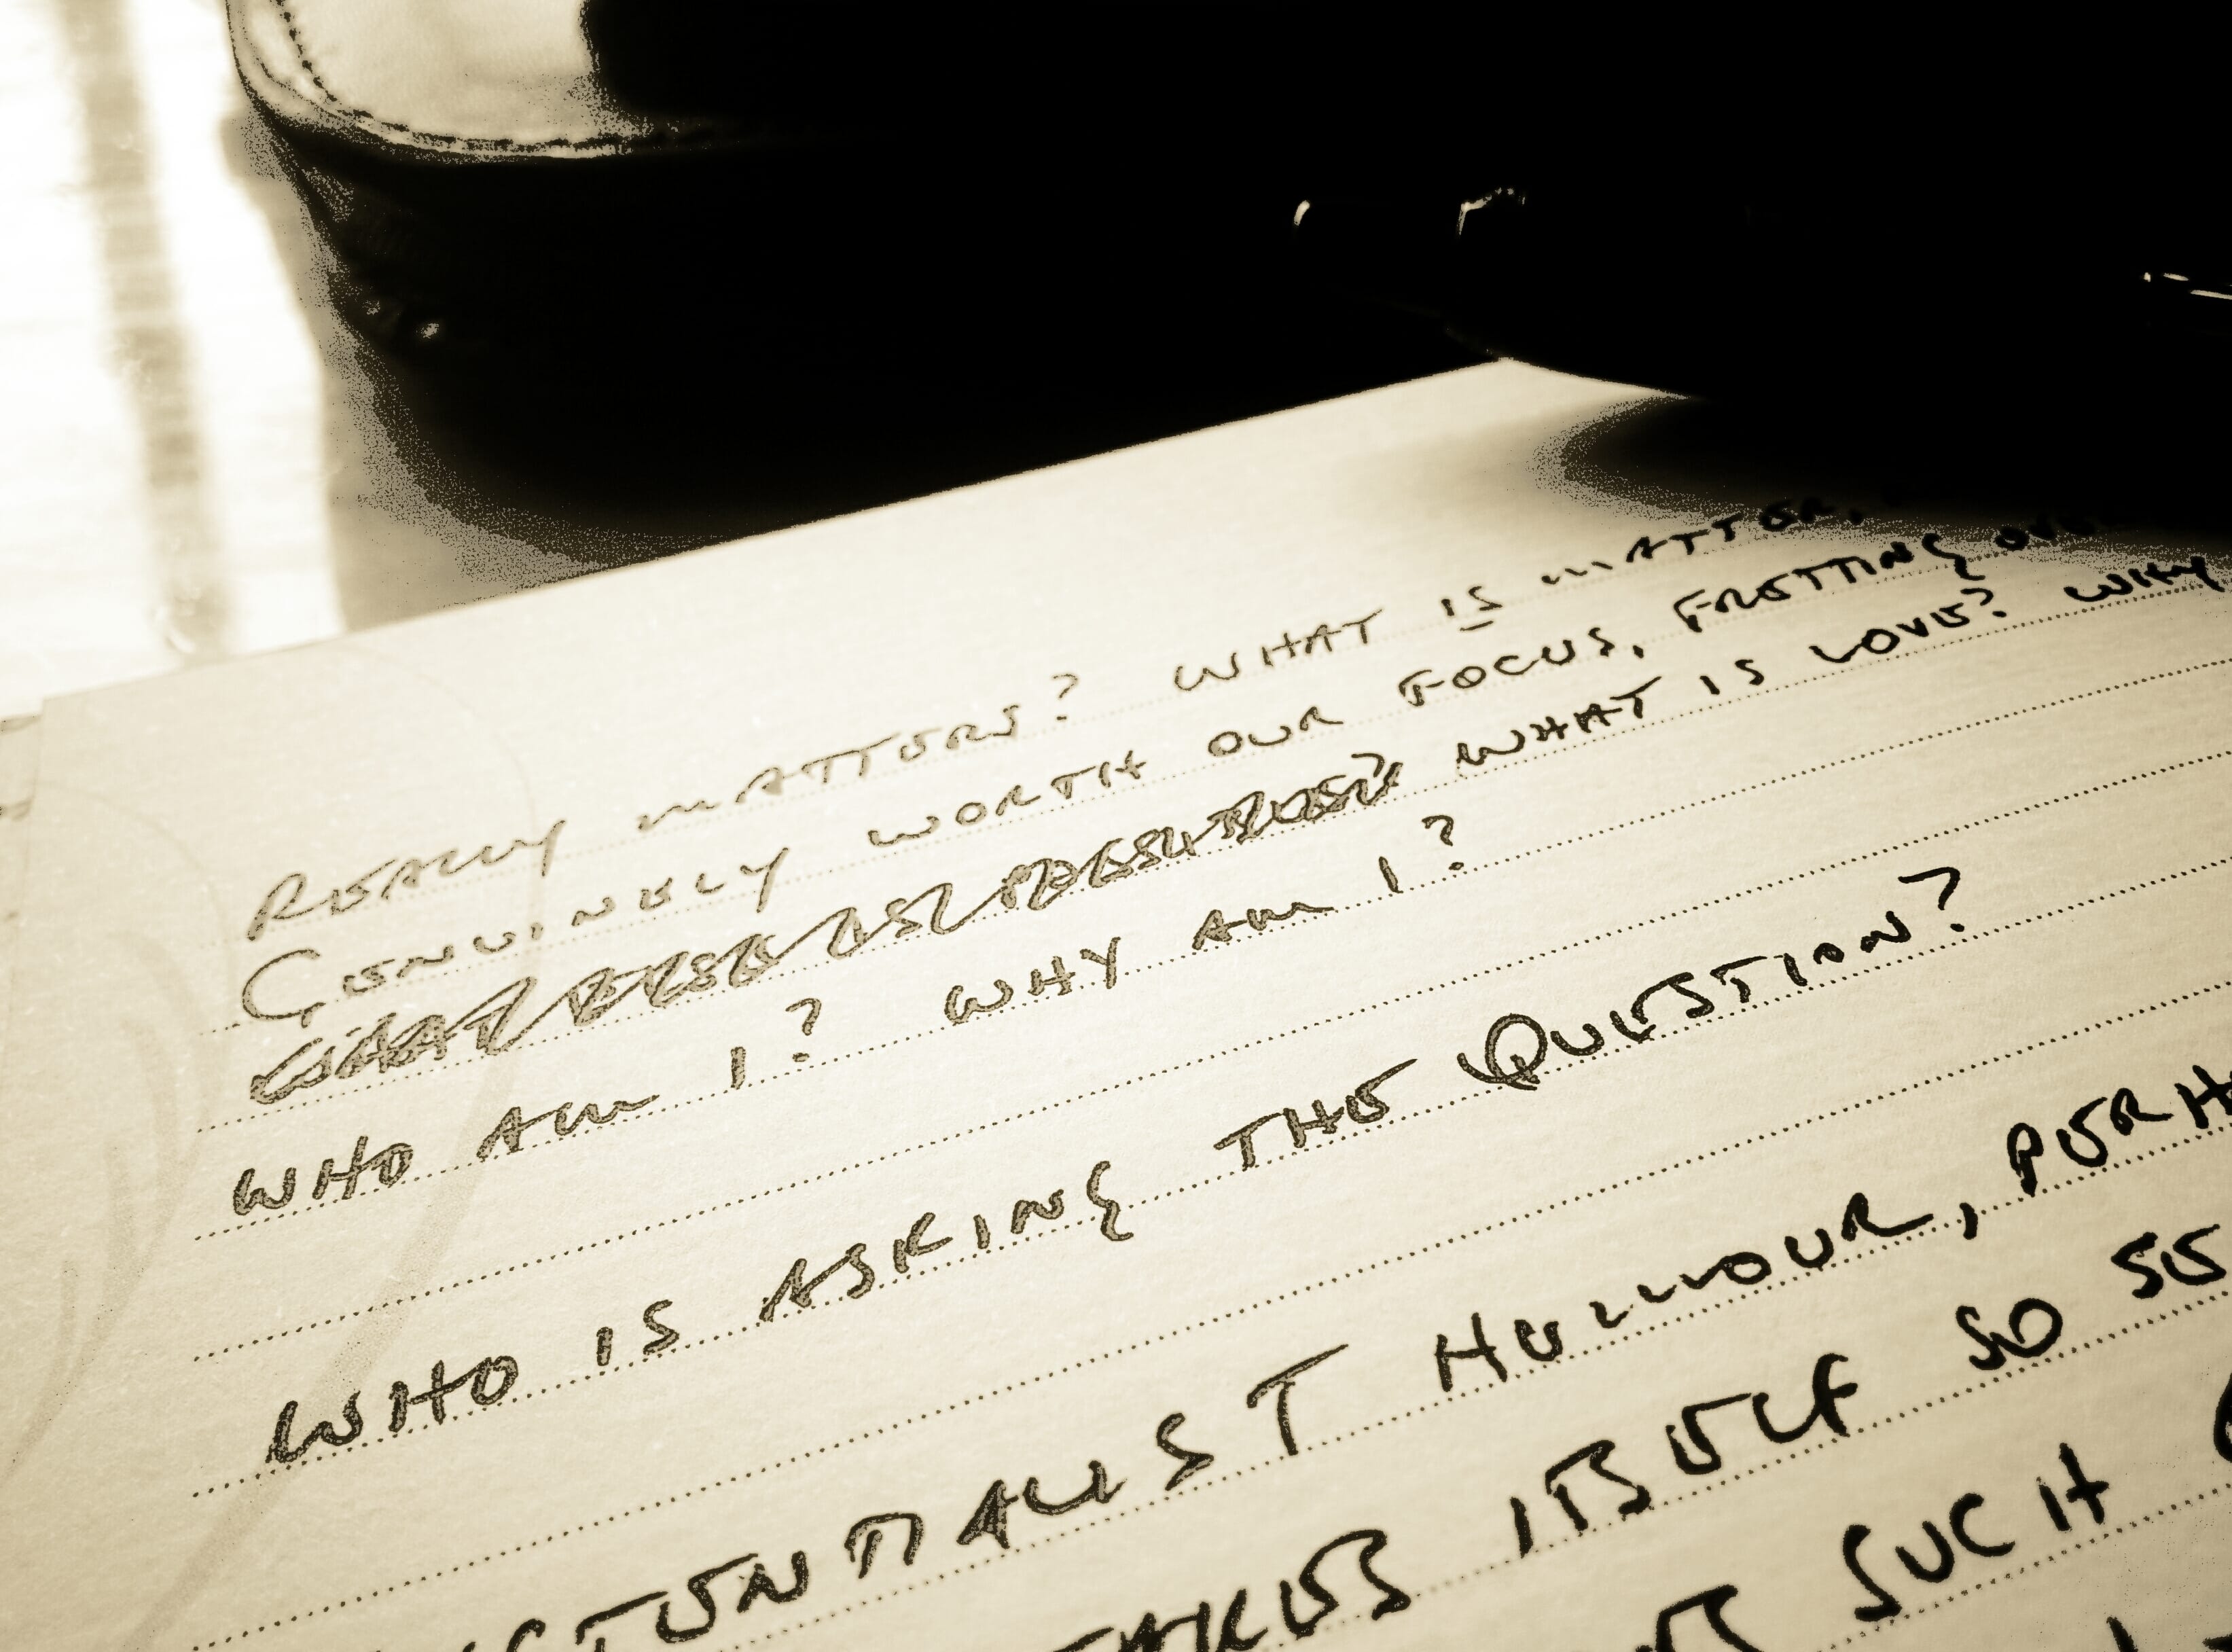 REALLY MATTERS? WHAT IS MATTER,
GENUINELY WORTH OUR FOCUS, FRETTING OVER
WHAT IS LOVE? WHY
WHO AM I? WHY AM I?
WHO IS ASKING THE QUESTION?
HUMOUR,
TAKES ITSELF SO
SUCH